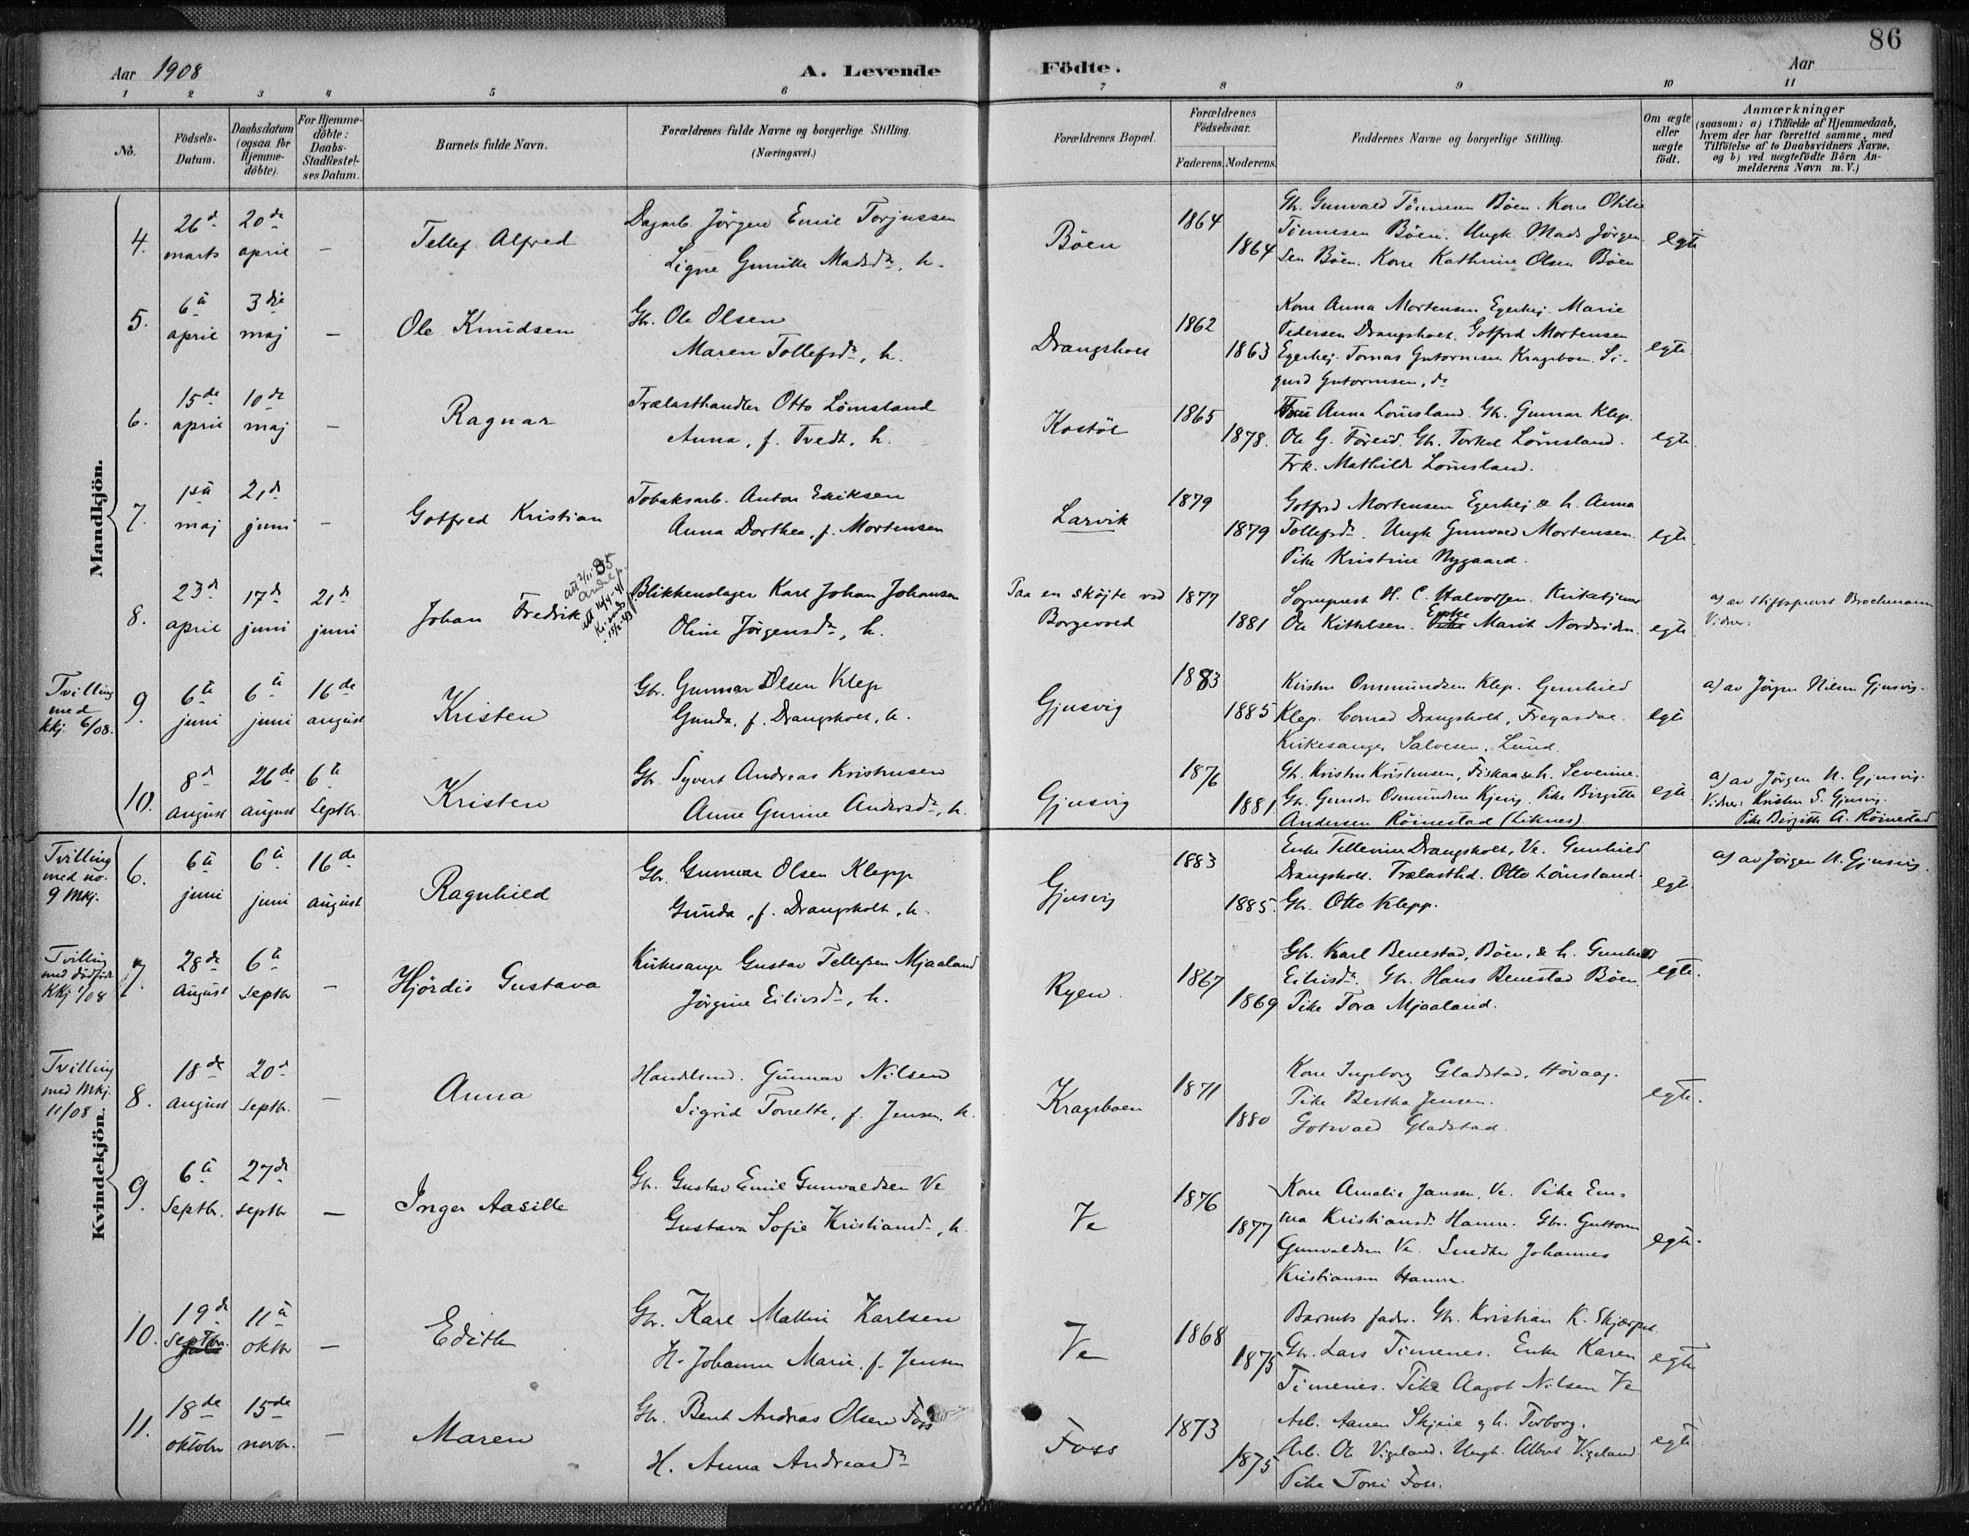 86
Aar 1908
A. Levende Födte.
Aar
1 2 3 4 5 6 7 8 9 10 11
No.
Födsels-
Datum.
Daabsdatum
(ogsaa for
Hjemme-
döbte).
For Hjemme-
döbte:
Daabs-
Stadfæstel-
ses Datum.
Barnets fulde Navn.
Forældrenes fulde Navne og borgerlige Stilling.
(Næringsvei.)
Forældrenes Bopæl.
Forældrenes
Födselsaar.
Faderens. Moderens.
Faddernes Navne og borgerlige Stilling.
Om ægte
eller
uægte
födt.
Anmærkninger
(saasom: a) i Tilfælde af Hjemmedaab,
hvem der har forrettet samme, med
Tilföielse af to Daabsvidners Navne.
og b) ved uægtefödte Börn An-
melderens Navn m. V.)
Mandkjön.
4. 26d marts 20de april –
Tellef Alfred
Dagarb. Jörgen Emil Torjussen
Signe Gunille Madsdr, h.
Böen
1864
1864
Gb. Gunvald Tönnesen Böen. Kone
Tönnesen Böen. Ungk. Mads Jörgen-
sen Böen. Kone Kathrine Olsen Böen
egte
5. 6te april 3dje maj –
Ole Knudsen
Gb. Ole Olsen
Maren Tollefsdr, h.
Drangsholt
1862
1863
Kone Anna Mortensen Egerhej. Marie
Pedersen Drangsholt. Gotfred Mortensen
Egerhej. Tomas Gutormsen Krageboen. Si-
gurd Gutormsen, ds
egte
6. 15de april 10de maj –
Ragnar
Trælasthandler Otto Lömsland
Anna, f. Tvedt, h.
Kostöl
1865
1878.
Fru Anna Lömsland. Gb. Gunnar Klep.
Ole G. Föreid. Gb. Torkel Lömsland.
Frk. Mathilde Lömsland.
egte
7. 1ste maj 21de juni –
Gotfred Kristian
Tobaksarb. Anton Eriksen
Anna Dorthea, f. Mortensen
Larvik
1879
1879
Gotfred Mortensen Egerhej & h. Anna
Tollefsdr. Ungk. Gunvald Mortensen.
Pike Kristine Nygaard.
egte
8. 23de april 17de juni 21de juni
Johan Fredrik
Blikkenslager Karl Johan Johansen
Oline Jörgensdr, h.
Paa en sköjte ved
Borgevold
1877
1881
Sogneprest H. C. Halvorsen. Kirketjener
Ole Kittelsen. Enke Marit Nordsiden.
egte
a) av stiftsprovst Brochmann
Vidner:
Tvilling
med
Kkj. 6/08.
9. 6te juni 6te juni 16de august
Kristen
Gbr. Gunnar Olsen Klep
Gunda, f. Drangsholt, h.
Gjusvig
1883
1885
Kirsten Osmundsen Klep. Gunhild
Klep. Conrad Drangsholt, Tregasdal.
Kirkesanger Salvesen, Lund.
egte
a) av Jörgen Nilsen Gjusvig.
10. 8de august 26de august 6te septbr.
Kristen
Gb. Syvert Andreas Kristensen
Anne Gurine Andersdr, h.
Gjusvig
1876
1881
Gb. Kristen Kristensen, Fiskaa & h. Severine.
Gb. Gunder Osmundsen Kjevig. Pike Birgitte
Andersen Röinestad (Liknes)
egte
a) av Jörgen N. Gjusvig.
Vidner: Kristen S. Gjusvig.
Pike Birgitte A. Röinestad
Kvindekjön.
Tvilling
med no.
9 Mkj.
6. 6te juni 6te juni 16de august
Ragnhild
Gb. Gunnar Olsen Klepp
Gunda, f. Drangsholt, h.
Gjusvig
1883
1885.
Enke Tellevine Drangsholt, Ve. Gunhild
Drangsholt. Trælasthd. Otto Lömsland.
Gb. Otto Klepp.
egte
a) av Jörgen N. Gjusvig.
Tvilling
med dödfödt
Kkj 1/08
7. 28de august 6te septbr –
Hjördis Gustava
Kirkesanger Gustav Tellefsen Mjaaland
Jörgine Eilivsdr, h.
Ryen.
1867
1869
Gbr. Karl Benestad, Böen, & h. Gunhild
Eilivsdr. Gbr. Hans Benestad Böen.
Pike Tora Mjaaland.
egte.
Tvilling
med Mkj.
11/08
8. 18de august 20de septbr. –
Anna
Handelsmd. Gunnar Nilsen
Sigrid Torrette, f. Jensen, h.
Krageboen
1871
1880
Kone Ingeborg Gladstad, Hövaag.
Pike Bertha Jensen.
Gotvald Gladstad.
egte.
9. 6te Septbr. 27de septbr –
Inger Aasille
Gb. Gustav Emil Gunvaldsen Ve
Gustava Sofie Kristiansdr, h.
Ve
1876
1877
Kone Amalie Jansen, Ve. Pike Em-
ma Kristiansdr Hamre. Gbr. Guttorm
Gunvaldsen Ve. Snedker Johannes
Kristiansen Hamre.
egte.
10. 19de Septbr. 11te oktbr –
Edith
Gb. Karl Mathin Karlsen
H. Johanne Marie, f. Jensen
Ve
1868
1875
Barnets fader. Gb. Kristian K. Skjærpe
Gbr. Lars Timenes. Enke Karen
Timenes. Pike Aagot Nilsen Ve
egte
11. 18de oktobr 15de novbr. –
Maren
Gb. Bent Andreas Olsen Foss
H. Anna Andreasdr
Foss
1873
1875
Arb. Aanen Skjeie & h. Torborg.
Arb. Ole Vigeland. Ungk. Albert Vigeland
Pike Tomi Foss.
egte